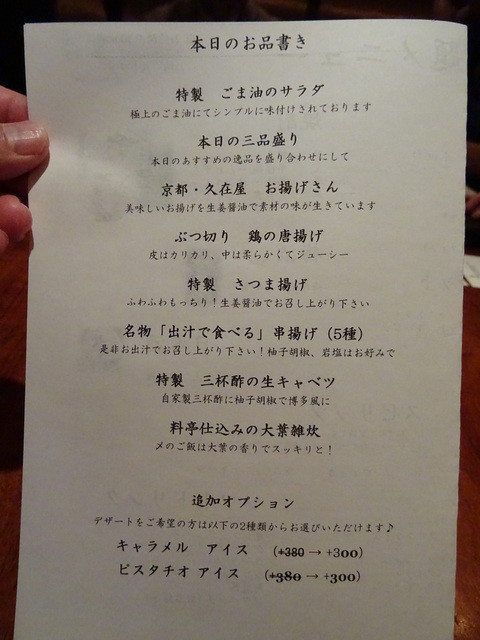 本日のお品書き
特製 ごま油のサラダ
極上のごま油にてシンプルに味付けされております
本日の三品盛り
本日のあすすめの逸品を盛り合わせにして
京都・久在屋 お揚げさん
美味しいお揚げを生姜醤油で素材の味が生きています
ぶつ切り 鶏の唐揚げ
皮はカリカリ、中は柔らかくてジューシー
特製 さつま揚げ
ふわふわもっちり！生姜醤油でお召し上がり下さい
名物「出汁で食べる」串揚げ（5種）
是非お出汁でお召し上がり下さい！柚子胡椒、岩塩はお好みで
特製 三杯酢の生キャベツ
自家製三杯酢に柚子胡椒で博多風に
料亭仕込みの大葉雑炊
〆のご飯は大葉の香りでスッキリと！
追加オプション
デザートをご希望の方は以下の2種類からお選びいただけます♪
キャラメル アイス （+380 → +300）
ピスタチオ アイス （+380 → +300）